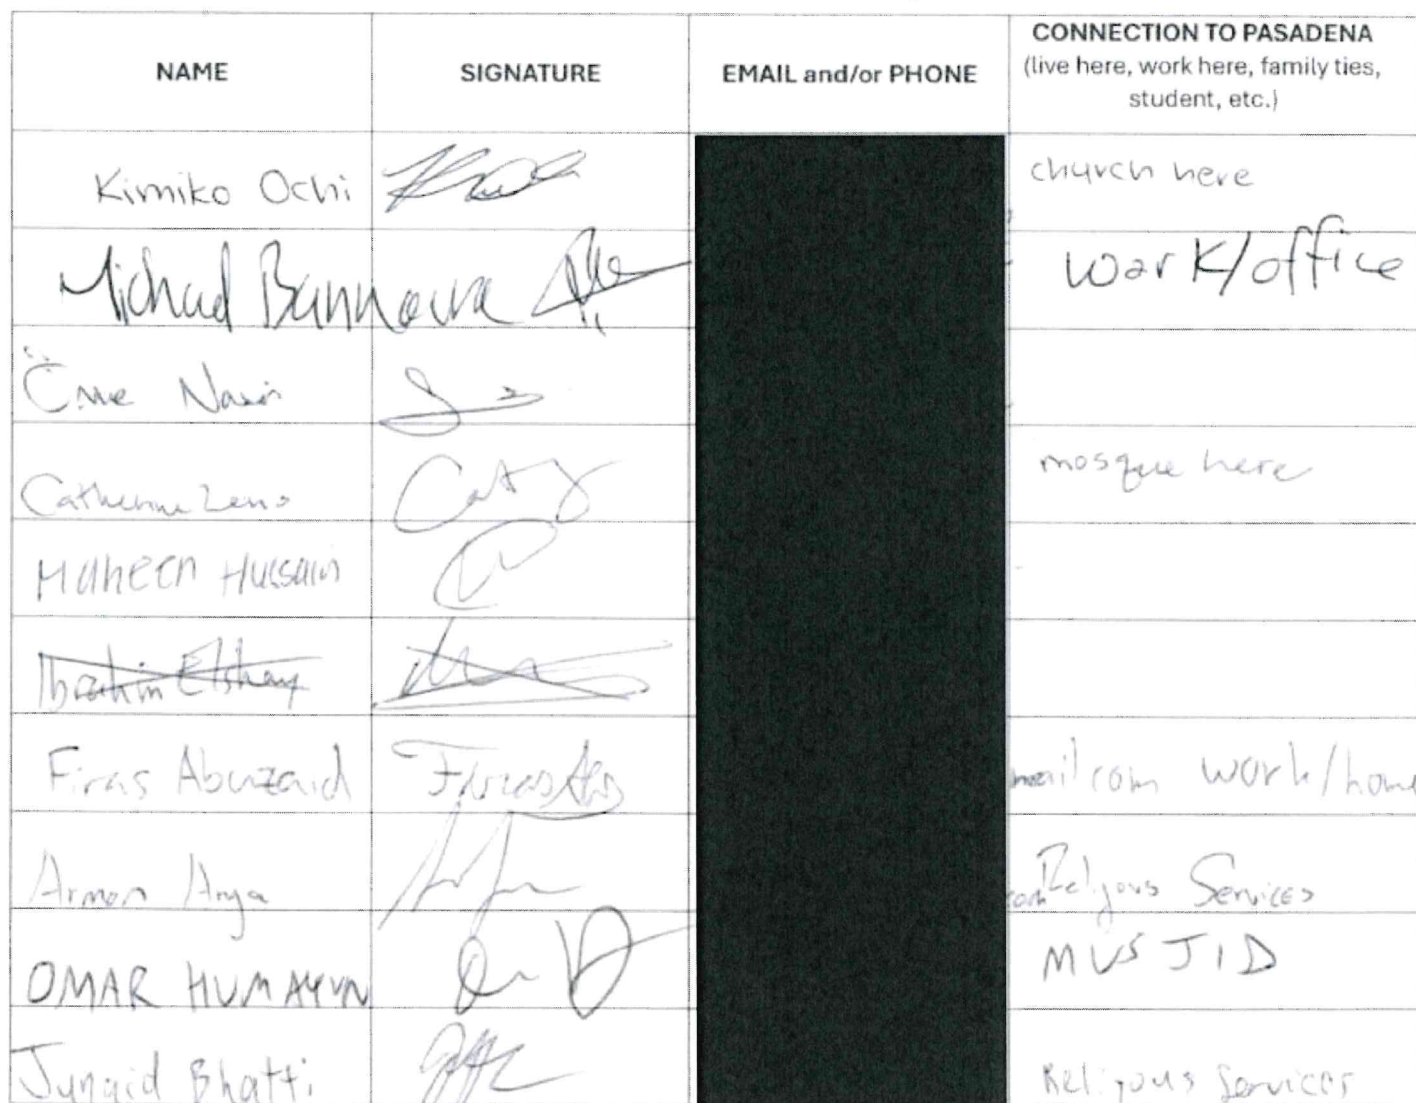 NAME SIGNATURE EMAIL and/or PHONE CONNECTION TO PASADENA
(live here, work here, family ties,
student, etc.)
Kimiko Ochi church here
Michael work/office
Catherine Zeno Caty mosque here
Maheen Hussain
Ibrahim
Firas Abuzaid Firas Abu mail com work/home
Arman Arya com Religous Services
OMAR HUMAYUN MUSJID
Junaid Bhatti Religous Services